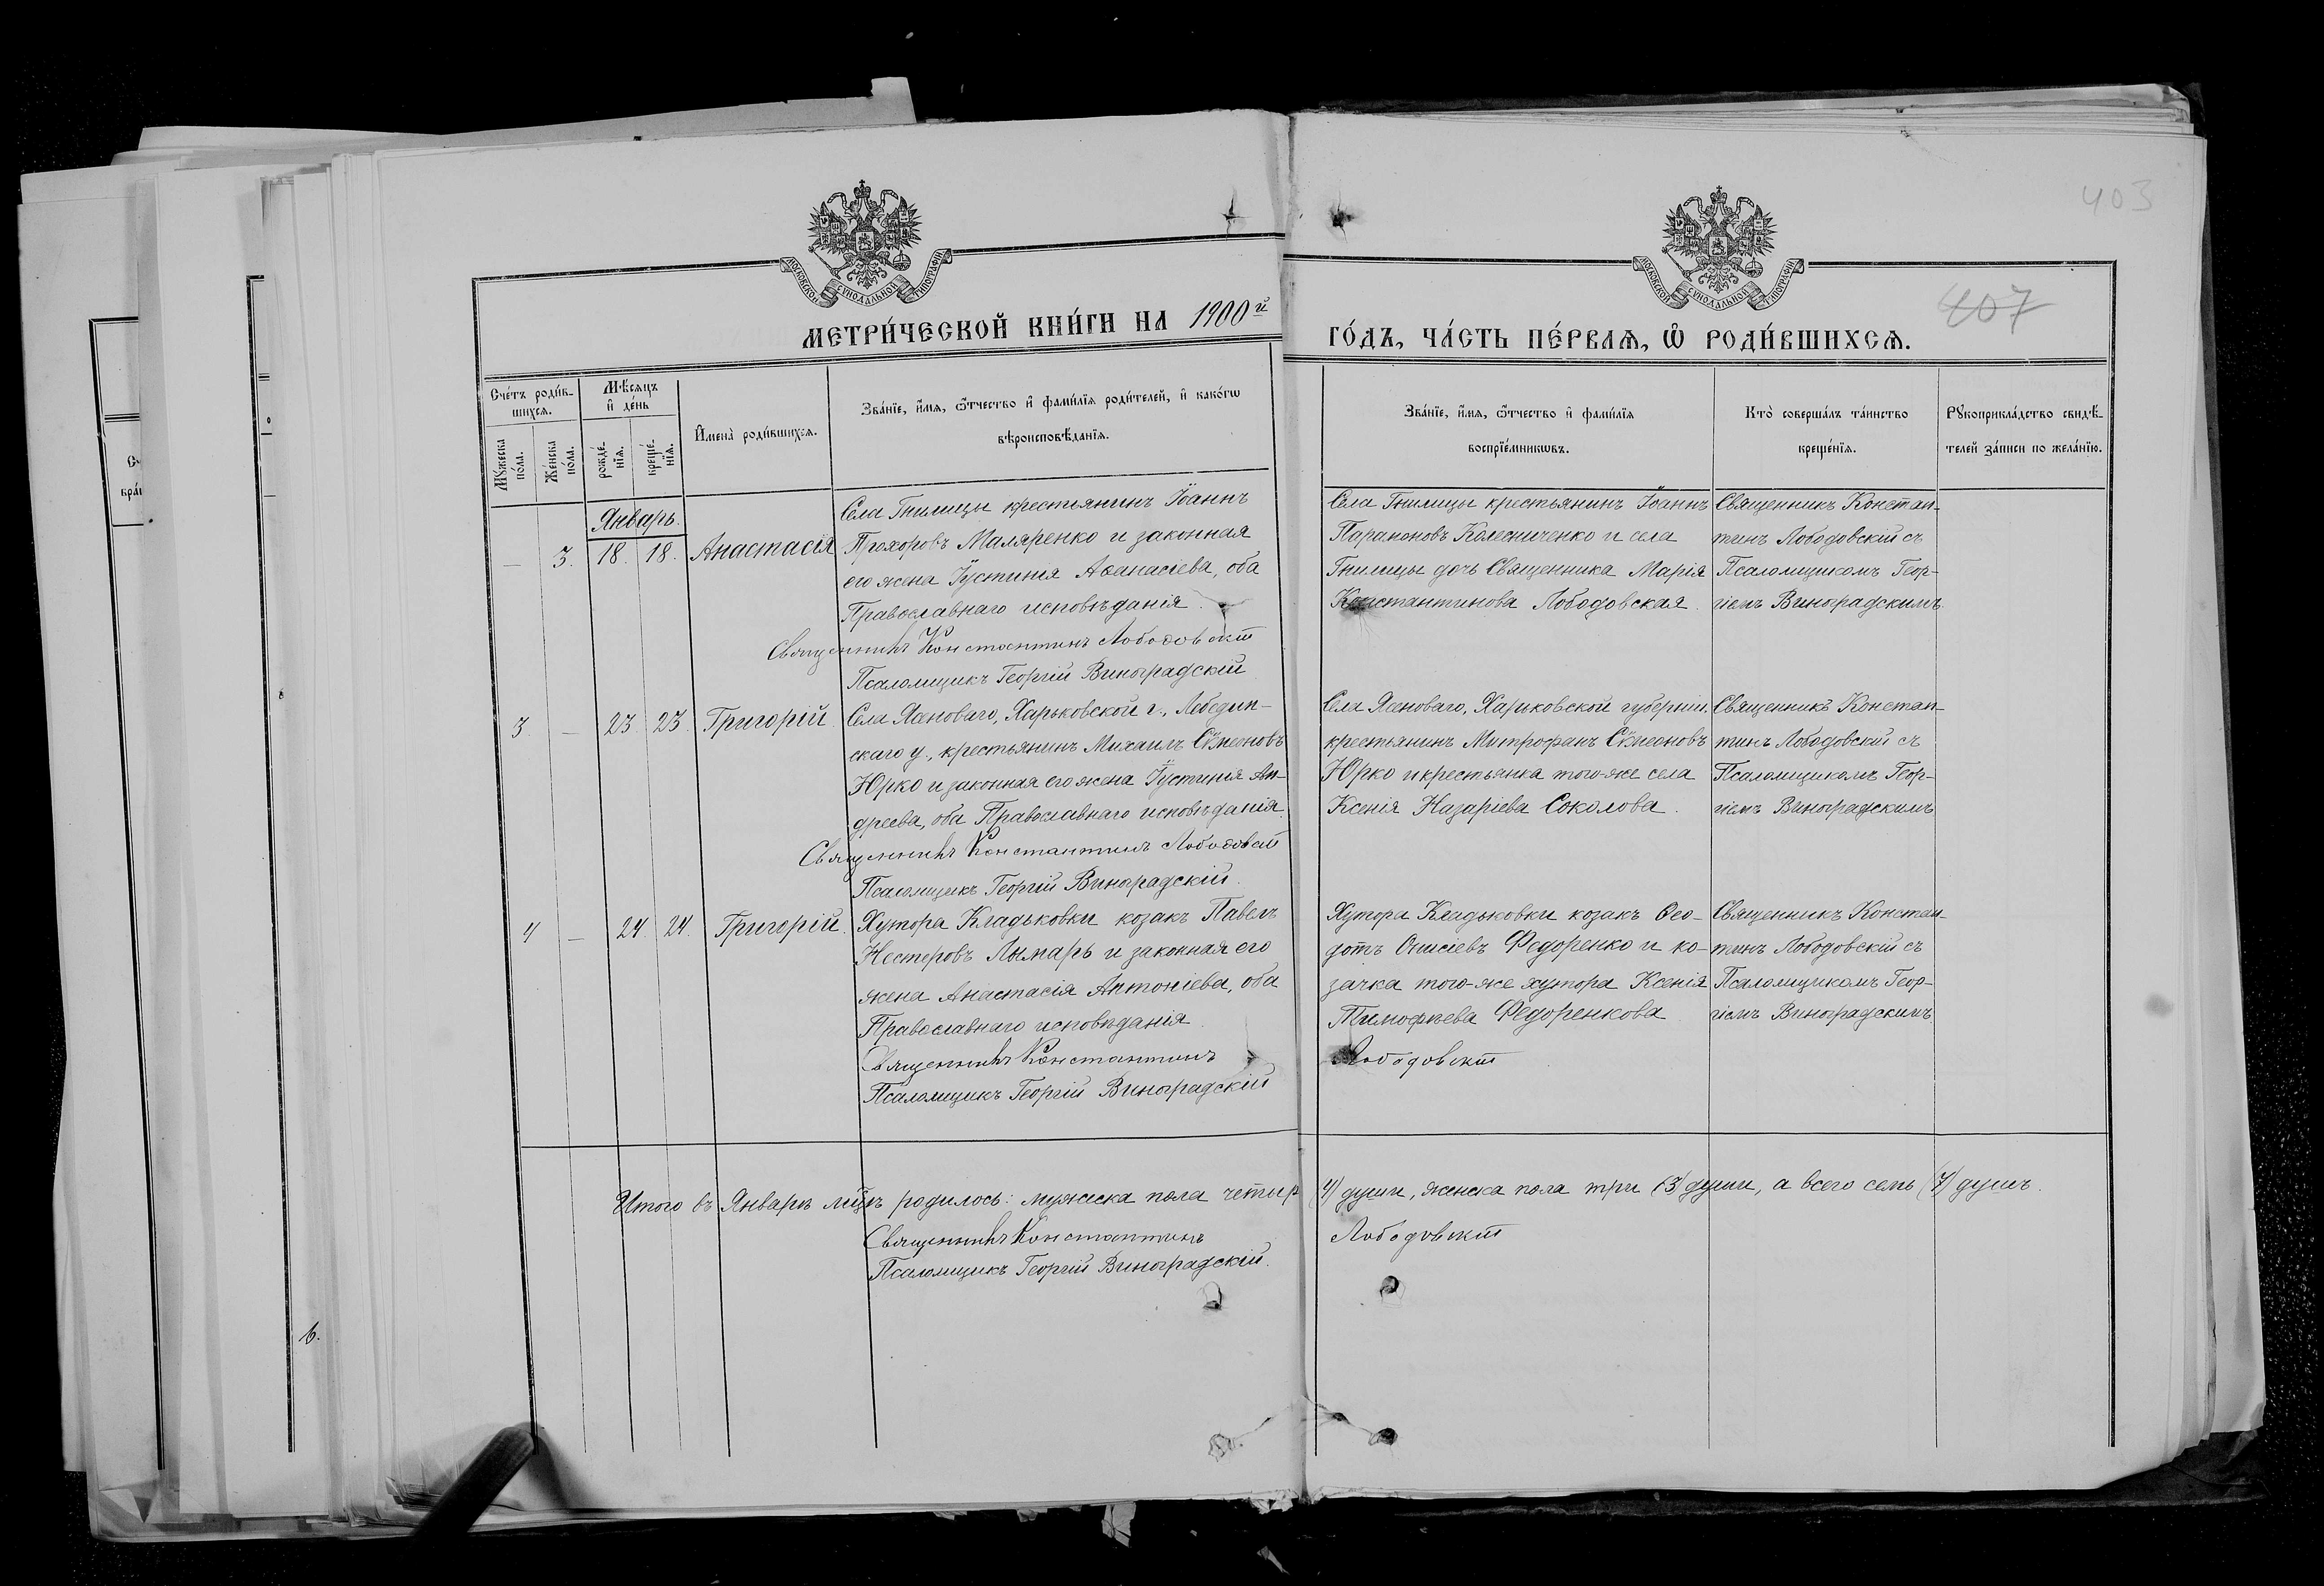 403
407
МОСКОВСКОЙ СѴНОДАЛЬНОЙ ТИПОГРАФІИ
МОСКОВСКОЙ СѴНОДАЛЬНОЙ ТИПОГРАФІИ
МЕТРИ́ЧЕСКОЙ КНИ́ГИ НА 1900й
ГО́ДЪ, ЧА́СТЬ ПЕ́РВАѦ, Ѡ҆ РОДИ́ВШИХСѦ.
Сче́тъ роди́в-
шихсѧ.
Мꙋ́жеска
по́ла.
Же́нска
по́ла.
Мѣ́сѧцъ
и҆ де́нь
рожде́-
нїѧ.
креще́-
нїѧ.
И҆мена̀ роди́вшихсѧ.
Зва́нїе, и҆́мѧ, ѻ҆́тчество и҆ фами́лїѧ роди́телей, и҆ како́гѡ
вѣроисповѣ́данїѧ.
Зва́нїе, и҆́мѧ, ѻ҆́тчество и҆ фами́лїѧ
воспрїе́мникѡвъ.
Кто̀ соверша́лъ та́инство
креще́нїѧ.
Рꙋкоприкла́дство свидѣ́-
телей за́писи по жела́нїю.
Январь.
— 3. 18. 18. Анастасія
Села Гнилицы крестьянинъ Іоаннъ
Прохоровъ Маляренко и законная
его жена Іустинія Аѳанасіева, оба
Православнаго исповѣданія.
Священникъ Константинъ Лободовскій
Псаломщикъ Георгій Виноградскій
Села Гнилицы крестьянинъ Іоаннъ
Парамоновъ Колесниченко и села
Гнилицы дочь Священника Марія
Константинова Лободовская.
Священникъ Констан-
тинъ Лободовскій съ
Псаломщикомъ Геор-
гіемъ Виноградскимъ.
3 — 23. 23. Григорій.
Села Ясеноваго, Харьковской г., Лебедин-
скаго у., крестьянинъ Михаилъ Сѵмеоновъ
Юрко и законная его жена Іустинія Ан-
дреева, оба Православнаго исповѣданія.
Священникъ Константинъ Лободовскій
Псаломщикъ Георгій Виноградскій.
Села Ясеноваго, Харьковской губерніи,
крестьянинъ Митрофанъ Сѵмеоновъ
Юрко и крестьянка того-же села
Ксенія Назаріева Соколова.
Священникъ Констан-
тинъ Лободовскій съ
Псаломщикомъ Геор-
гіемъ Виноградскимъ
4 — 24. 24. Григорій.
Хутора Кладьковки козакъ Павелъ
Нестеровъ Лымарь и законная его
жена Анастасія Антоніева, оба
Православнаго исповѣданія.
Священникъ Константинъ
Псаломщикъ Георгій Виноградскій
Хутора Кладьковки козакъ Ѳео-
дотъ Онисіевъ Федоренко и ко-
зачка того-же хутора Ксенія
Тимофѣева Федоренкова
Лободовскій
Священникъ Констан-
тинъ Лободовскій съ
Псаломщикомъ Геор-
гіемъ Виноградскимъ.
Итого въ Январѣ мцѣ родилось: мужеска пола четыр (4) души, женска пола три (3) души, а всего семь (7) душъ.
Священникъ Константинъ Лободовскій
Псаломщикъ Георгій Виноградскій.